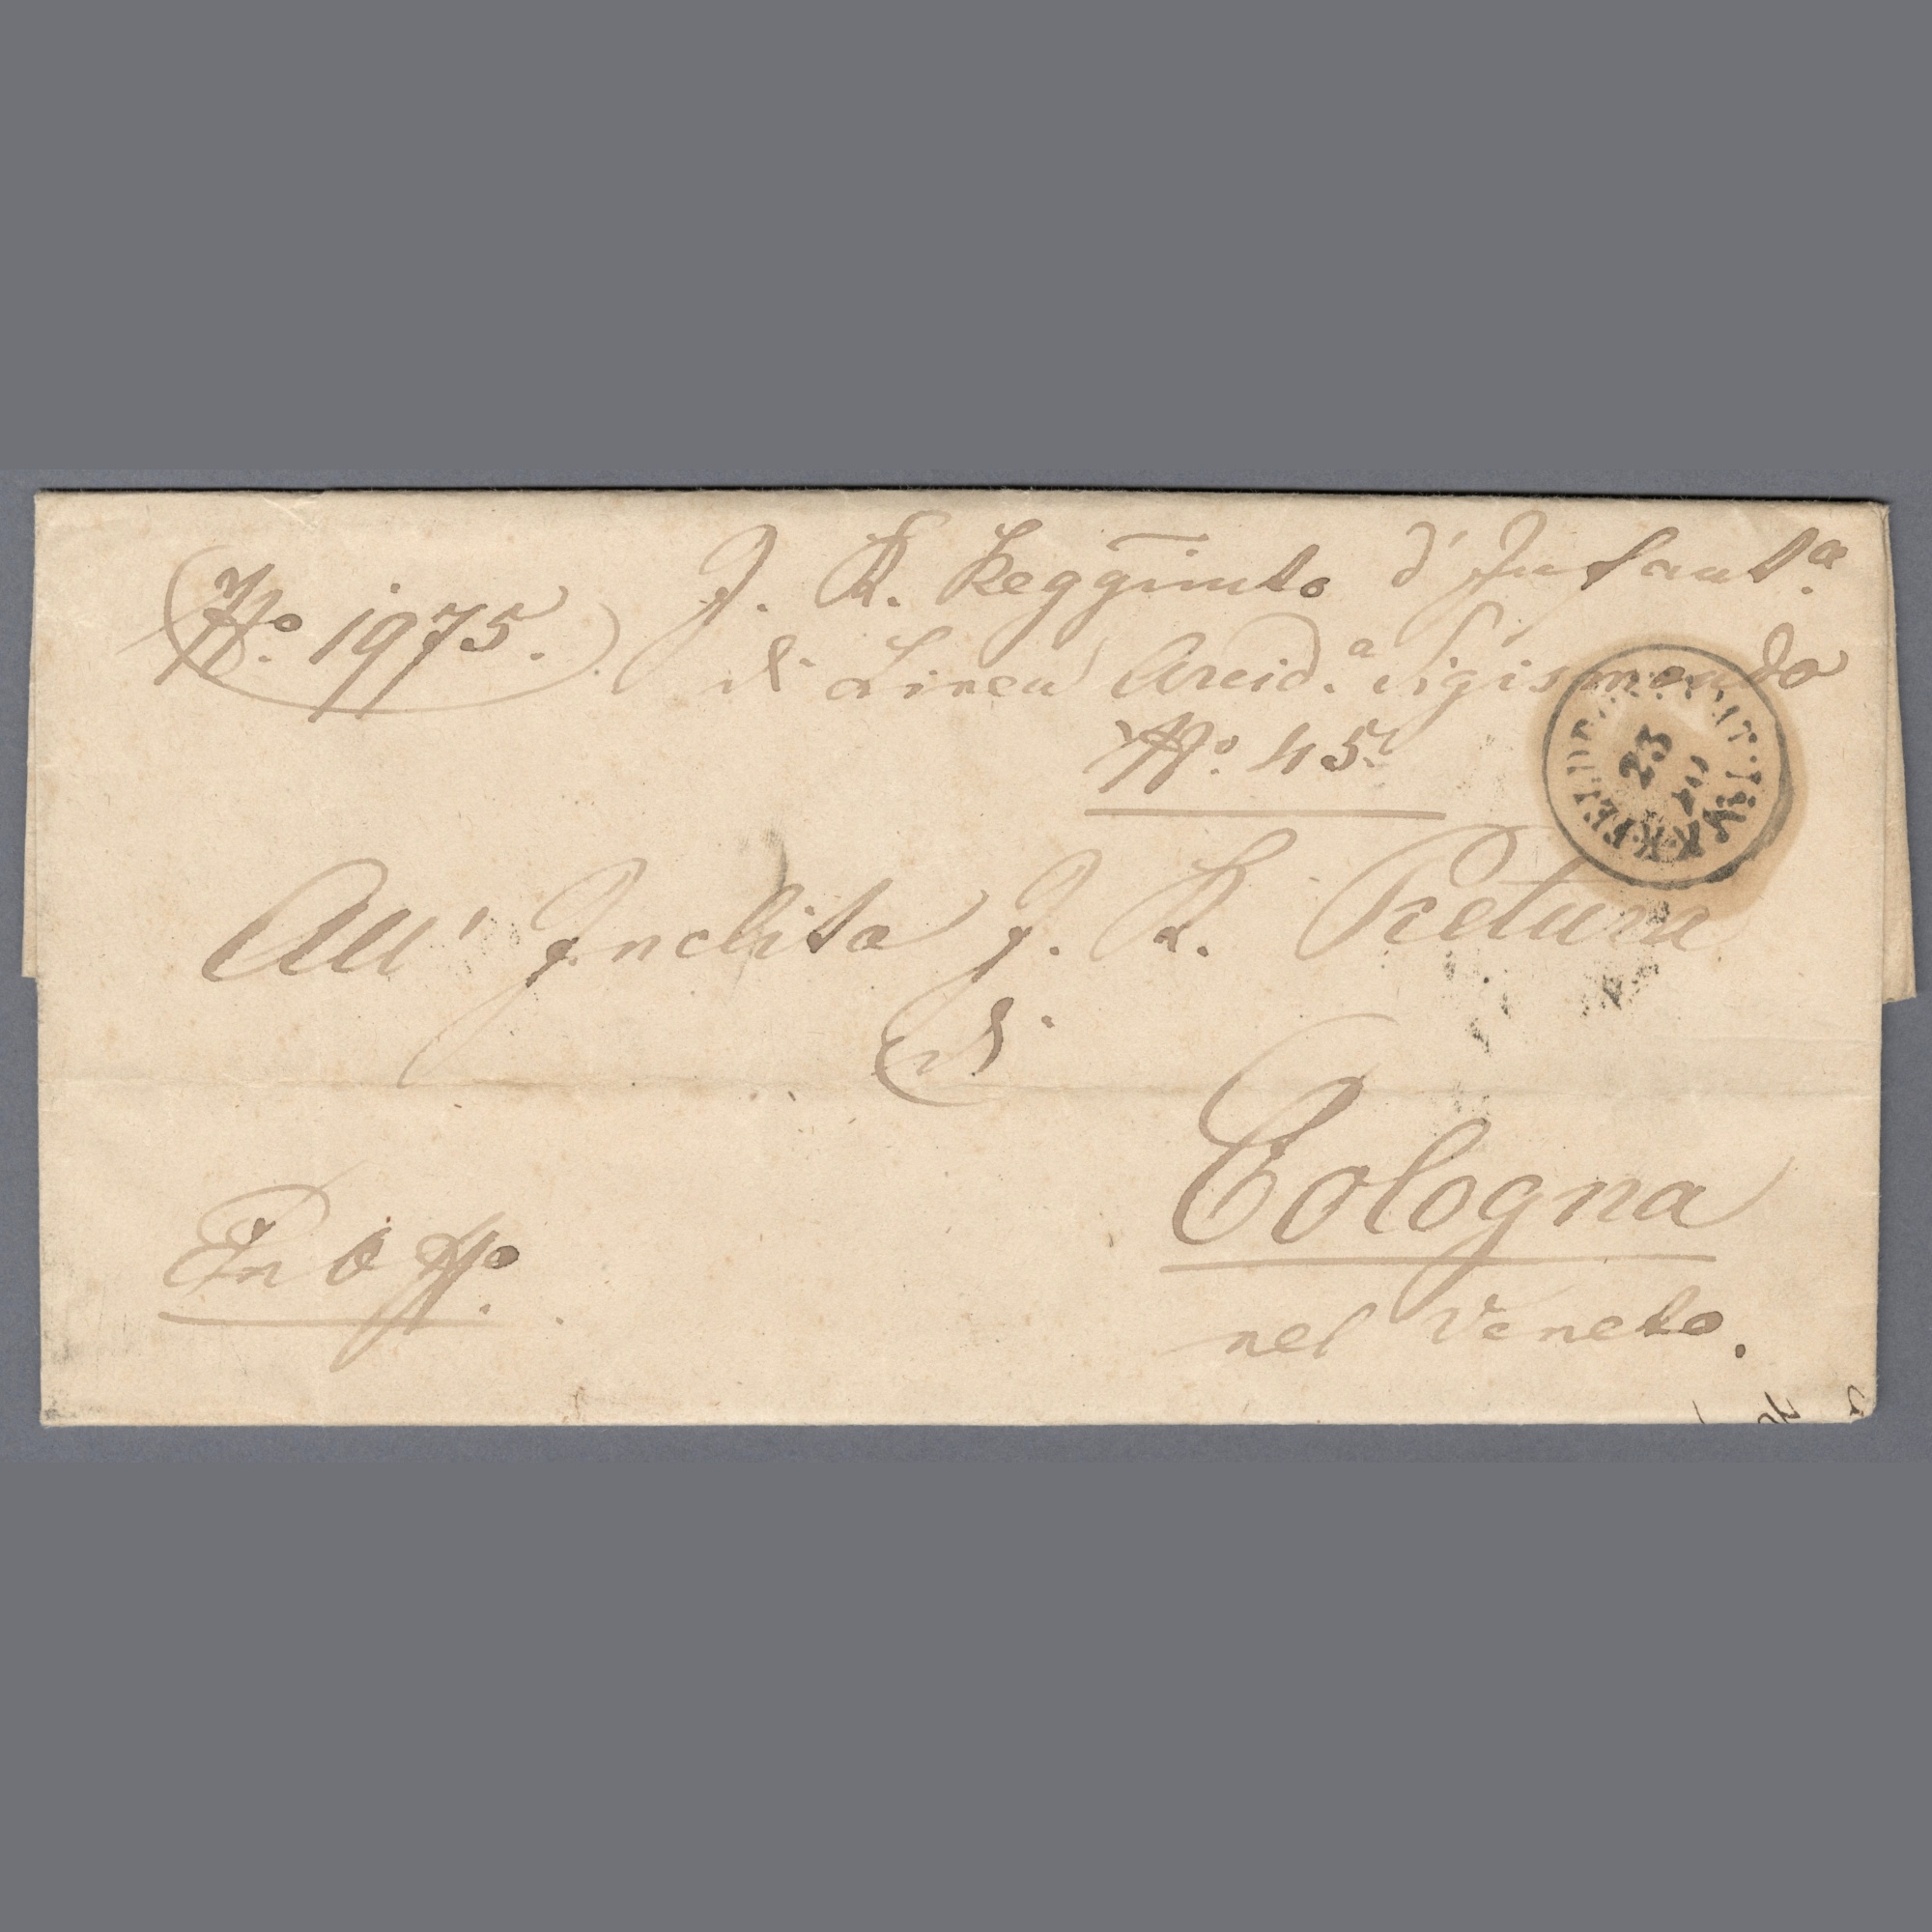 No. 1975.
J. R. Reggimto d'Infanta.
di Linea Arcida. Sigismondo
No. 45.
23
All' Inclita J. R. Pretura
di
Cologna
nel Veneto.
In offo.